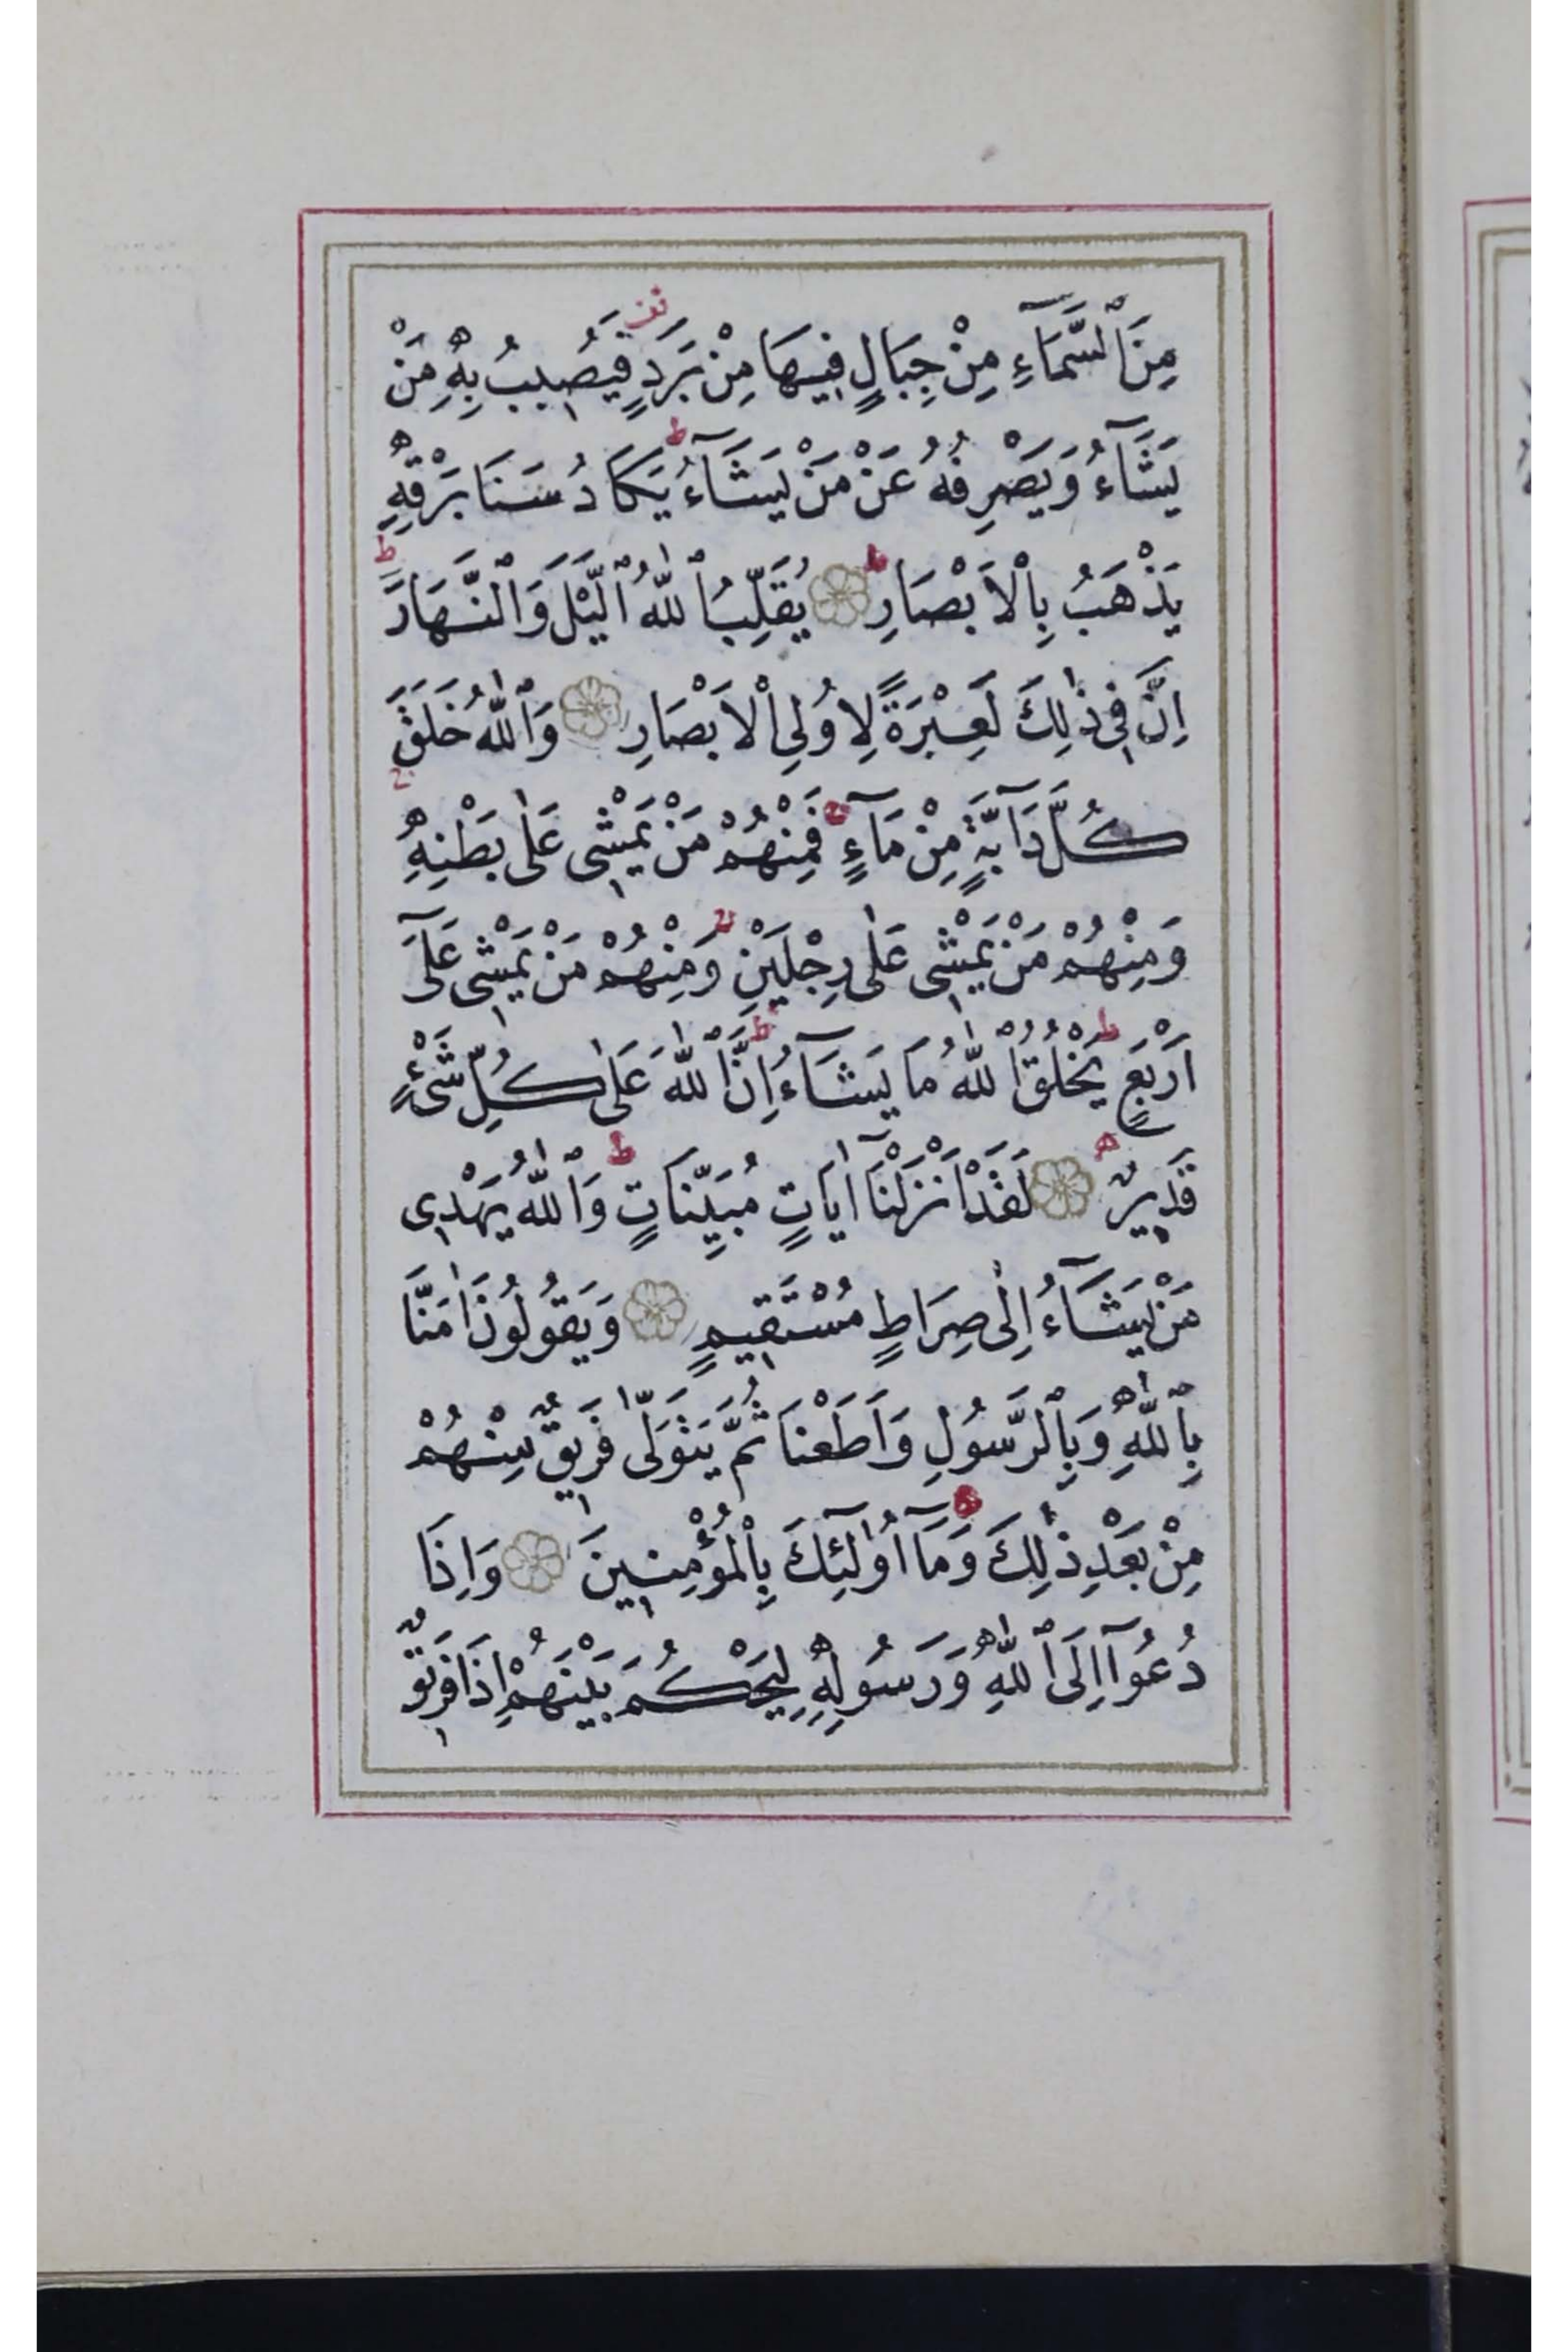 مِنَ ٱلسَّمَآءِ مِنْ جِبَالٍ فِيهَا مِنْ بَرَدٍ فَيُصِيبُ بِهِ مَنْ
يَشَآءُ وَيَصْرِفُهُ عَنْ مَنْ يَشَآءُ ط يَكَادُ سَنَا بَرْقِهِ
يَذْهَبُ بِٱلْاَبْصَارِ ط يُقَلِّبُ ٱللّٰهُ ٱلَّيْلَ وَٱلنَّهَارَ ط
اِنَّ فِى ذٰلِكَ لَعِبْرَةً لِاُولِى ٱلْاَبْصَارِ وَٱللّٰهُ خَلَقَ
كُلَّ دَآبَّةٍ مِنْ مَآءٍ ج فَمِنْهُمْ مَنْ يَمْشِى عَلٰى بَطْنِهِ ج
وَمِنْهُمْ مَنْ يَمْشِى عَلٰى رِجْلَيْنِ ج وَمِنْهُمْ مَنْ يَمْشِى عَلَٓى
اَرْبَعٍ ط يَخْلُقُ ٱللّٰهُ مَا يَشَآءُ ط اِنَّ ٱللّٰهَ عَلٰى كُلِّ شَىْءٍ
قَدِيرٌ ه لَقَدْ اَنْزَلْنَآ اٰيَاتٍ مُبَيِّنَاتٍ ط وَٱللّٰهُ يَهْدِى
مَنْ يَشَآءُ اِلٰى صِرَاطٍ مُسْتَقِيمٍ وَيَقُولُونَ اٰمَنَّا
بِٱللّٰهِ وَبِٱلرَّسُولِ وَاَطَعْنَا ثُمَّ يَتَوَلّٰى فَرِيقٌ مِنْهُمْ
مِنْ بَعْدِ ذٰلِكَ ط وَمَآ اُولٰٓئِكَ بِٱلْمُؤْمِنِينَ وَاِذَا
دُعُوٓا اِلَى ٱللّٰهِ وَرَسُولِهِ لِيَحْكُمَ بَيْنَهُمْ اِذَا فَرِيقٌ